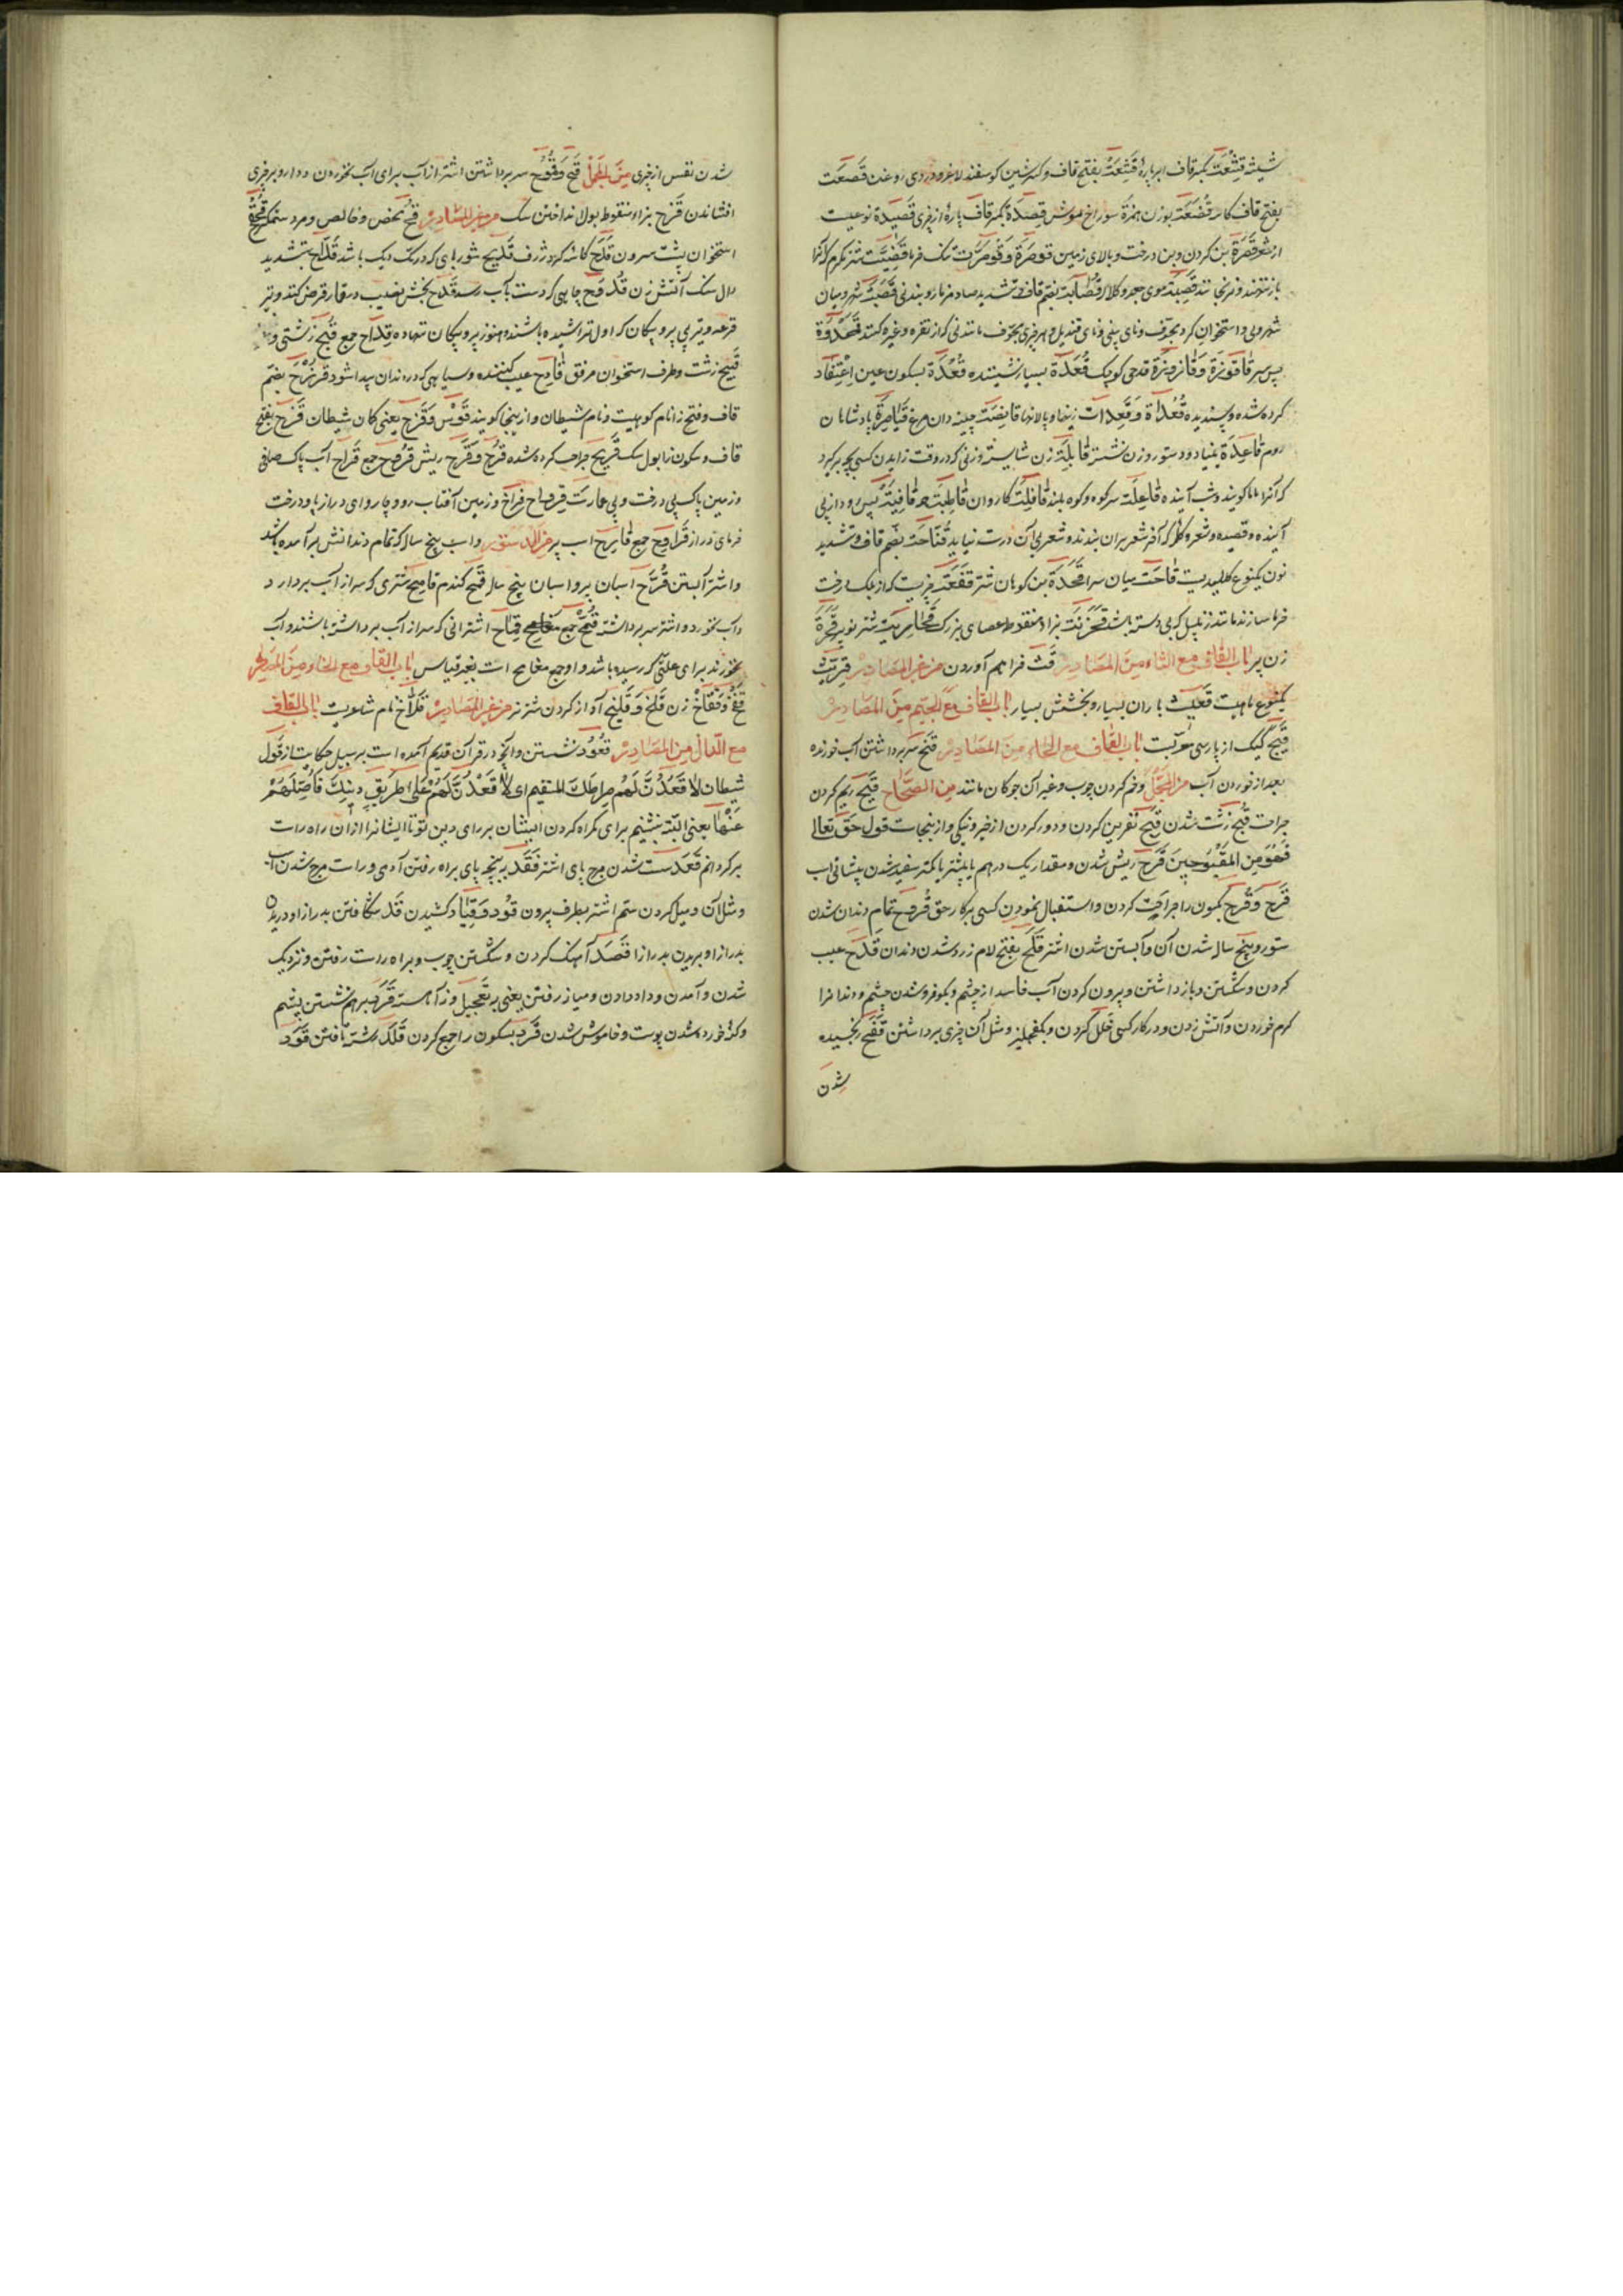 شیشه قشعة بکسر قاف ابر پاره قشعة بفتح قاف و کسر شین کوسفند لاغر و دردی روغن قصعت
بفتح قاف کاسه قصعة بوزن همزة سوراخ موش قصدة بکسر قاف پارهٔ از چیزی قصیدة نوعیست
از شعر قصرة بن کردن و بن درخت و بالای زمین قوصرة و قوصرت تنک خرما قضیت شتر مکرم که آنرا
باز موی جعد و کلاله قصابة بضم قاف و تشدید صاد مزمار و بندنی قصبة شهر و میان
شهر و نی و استخوان کرد مجوف و نای بینی و نای قندیل و هر چیزی مجوف مانند نی که از نقره و غیره کنند قمحدوة
پس سر قاقوزة و قازوزة قدحی کوچک قعدة بسیار نشیننده قعدة بسکون عین اعتقاد
کرده شده و پسندیده قعدات زینها و پالانها قانصة چینه دان مرغ قیاصرة پادشاهان
روم قاعدة بنیاد و دستور و زن نشسته قابلة زن شایسته و زنی که در وقت زاییدن کسی بچه بر کیرد
که آنرا ماما کویند و شب آینده قاعلة سر کوه و کوه بلند قافلة کاروان قاطبة همه قافیة پس رو و از پی
آینده و قصیده و شعر و کلمه که آخر شعر بران بندند و شعر بی آن درست نیاید قناحة بضم قاف و تشدید
نون یکنوع کلیدیست قاحة میان سرا قحدة بن کوهان شتر قفعة چیزیست که از برک درخت
خرما سازند مانند زنبیل که بی دسته باشد قحزنة بزاء منقوطه عصای بزرک قحارية شتر نوپیر قحرة
زن پیر باب القاف مع الثاء من المصادر قث فراهم آوردن من غیر المصادر قریث
یکنوع ماهیست قعیث باران بسیار و بخشش بسیار باب القاف مع الجیم من المصادر
قبج کبک از پارسی معربست باب القاف مع الحاء من المصادر قنح سر برداشتن آب خورنده
بعد از خوردن آب من المجمل و خم کردن چوب و غیر آن چو کان مانند من الصحاح قیح ریم کردن
جراحت قبح زشت شدن قبح نفرین کردن و دور کردن از خیر و نیکی و از ینجاست قول حق تعالی
فهو من المقبوحین قرح ریش شدن و مقدار یک درهم یا بیشتر یا کمتر سفید شدن پیشانی اسب
قرح و قرح بکون را جراحت کردن و استقبال نمودن کسی بر کار حق قروح تمام دندان شدن
ستور و پنج ساله شدن آن و آبستن شدن اشتر قلح بفتح لام زرد شدن دندان قدح عیب
کردن و شکستن و باز داشتن و بیرون کردن آب فاسد از چشم و بکو فرو شدن چشم و دندانرا
کرم خوردن و آتش زدن و در کار کسی خلل کردن و بکفچلیز و مثل آن چیزی برداشتن قفح رنجیده
شدن
شدن نفس از چیزی من المجمل قمح و قموح سر برداشتن اشتر از آب برای آب نخوردن و دارو بر چیزی
افشاندن قزح بزاء منقوطه بول انداختن سک من غیر المصادر قح محض و خالص و مرد ستمکر قحقح
استخوان پشت سرون قلح کاسه کرد و ژرف قدیح شوربای که در تک دیک باشد قداح بتشدید
دال سنک آتش زن قدوح چاهی که دست بآب رسد قدح بخش نصیب در قمار قرض کنند و تیر
قرعه و تیر بی پر و پیکان که اول تراشیده باشند و هنوز پر و پیکان ننهاده قداح جمع قبح زشتی و
قبیح زشت و طرف استخوان مرفق قادح عیب کننده و سیاهی که در دندان پیدا شود قزح بضم
قاف و فتح زا نام کوهیست و نام شیطان و از ینجا کویند قوس قزح یعنی کمان شیطان قزح بفتح
قاف و سکون زا بول سک قریح جراحت کرده شده قرح و قرح ریش قروح جمع قراح آب پاک صافی
و زمین پاک بی درخت و بی عمارت قرواح فراخ و زمین آفتاب رو و چاروای دراز پا و درخت
خرمای دراز قراوح جمع قارح اسب پیر من الدستور و اسب پنج ساله که تمام دندانش برآمده باشد
و اشتر آبستن قرح اسبان پیر و اسبان پنج ساله قمح کندم قامح شتری که سر از آب بردارد
و آب نخورد و اشتر سر برداشته قمح جمع قماح اشترانی که سر از آب برداشته باشند و آب
نخورند برای علتی که رسیده باشد و او جمع مقامح است بغیر قیاس باب القاف مع الخاء من المصادر
قفخ و قفاخ زن قلخ و قلیخ آواز کردن شتر نر من غیر المصادر قلاخ نام شاعریست باب القاف
مع الدال من المصادر قعود نشستن و آنچه در قرآن قدیم آمده است بر سبیل حکایت از قول
شیطان لاقعدن لهم صراطک المستقیم ای لاقعدن لهم علی طریق دینک فاضلهم
عنها یعنی البته بنشینم برای کمراه کردن ایشان بر رای دین تو تا ایشانرا از ان راه راست
برکردانم قعد سست شدن مچ پای اشتر قفد بر پنجه پای براه رفتن آدمی و راست مچ شدن اسب
و مثل آن و میل کردن ستم اشتر بطرف بیرون قود و قیاد کشیدن قد شکافتن بدرازا و دریدن
بدرازا و بریدن بدرازا قصد آهنک کردن و شکستن چوب و براه راست رفتن و نزدیک
شدن و آمدن و داد دادن و میانه رفتن یعنی نه بتعجیل و نه آهسته قرد بر هم نشستن پشم
و کنه خورده شدن پوست و خاموش شدن قرد بسکون را جمع کردن قلد رشته تافتن قود